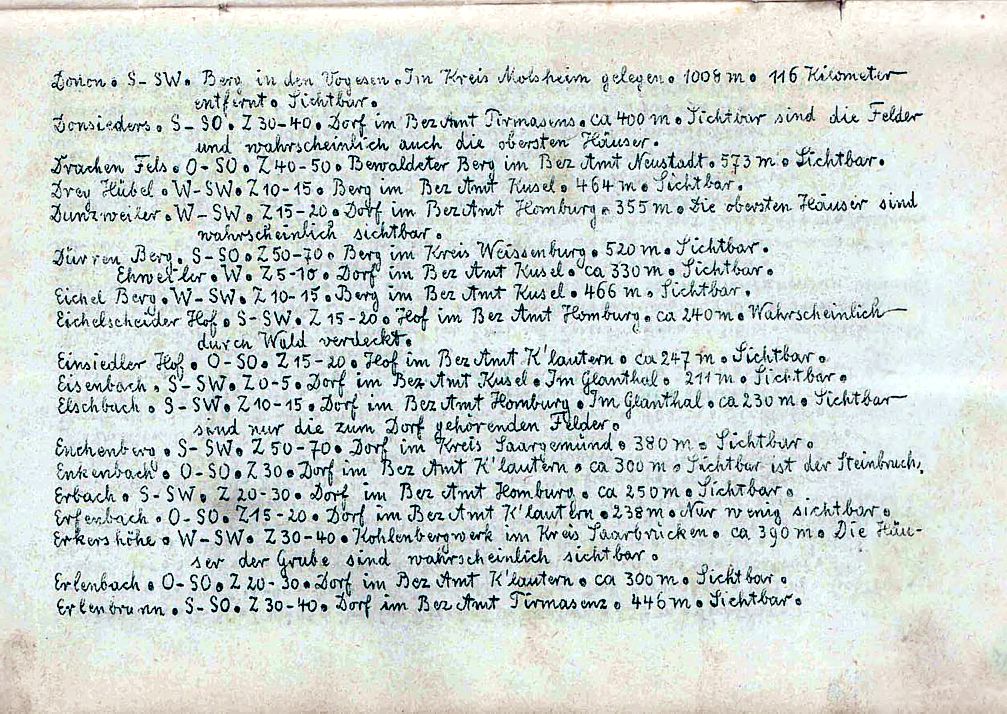 Donon. S-SW. Berg in den Vogesen. Im Kreis Molsheim gelegen. 1008 m. 116 Kilometer
entfernt. Sichtbar.
Donsieders. S-SO. Z 30-40. Dorf im Bez Amt Pirmasens. ca 400 m. Sichtbar sind die Felder
und wahrscheinlich auch die obersten Häuser.
Drachen Fels. O-SO. Z 40-50. Bewaldeter Berg im Bez Amt Neustadt. 573 m. Sichtbar.
Drey Hübel. W-SW. Z 10-15. Berg im Bez Amt Kusel. 464 m. Sichtbar.
Dunzweiler. W-SW. Z 15-20. Dorf im Bez Amt Homburg. 355 m. Die obersten Häuser sind
wahrscheinlich sichtbar.
Dürren Berg. S-SO. Z 50-70. Berg im Kreis Weissenburg. 520 m. Sichtbar.
Ehweiler. W. Z 5-10. Dorf im Bez Amt Kusel. ca 330 m. Sichtbar.
Eichel Berg. W-SW. Z 10-15. Berg im Bez Amt Kusel. 466 m. Sichtbar.
Eichelscheider Hof. S-SW. Z 15-20. Hof im Bez Amt Homburg. ca 240 m. Wahrscheinlich
durch Wald verdeckt.
Einsiedler Hof. O-SO. Z 15-20. Hof im Bez Amt K'lautern. ca 247 m. Sichtbar.
Eisenbach. S-SW. Z 0-5. Dorf im Bez Amt Kusel. Im Glanthal. 211 m. Sichtbar.
Elschbach. S-SW. Z 10-15. Dorf im Bez Amt Homburg. Im Glanthal. ca 230 m. Sichtbar
sind nur die zum Dorf gehörenden Felder.
Enchenberg. S-SW. Z 50-70. Dorf im Kreis Saargemünd. 380 m. Sichtbar.
Enkenbach. O-SO. Z 30. Dorf im Bez Amt K'lautern. ca 300 m. Sichtbar ist der Steinbruch.
Erbach. S-SW. Z 20-30. Dorf im Bez Amt Homburg. ca 250 m. Sichtbar.
Erfenbach. O-SO. Z 15-20. Dorf im Bez Amt K'lautern. 238 m. Nur wenig sichtbar.
Erkershöhe. W-SW. Z 30-40. Kohlenbergwerk im Kreis Saarbrücken. ca 390 m. Die Häu-
ser der Grube sind wahrscheinlich sichtbar.
Erlenbach. O-SO. Z 20-30. Dorf im Bez Amt K'lautern. ca 300 m. Sichtbar.
Erlenbrunn. S-SO. Z 30-40. Dorf im Bez Amt Pirmasenz. 446 m. Sichtbar.